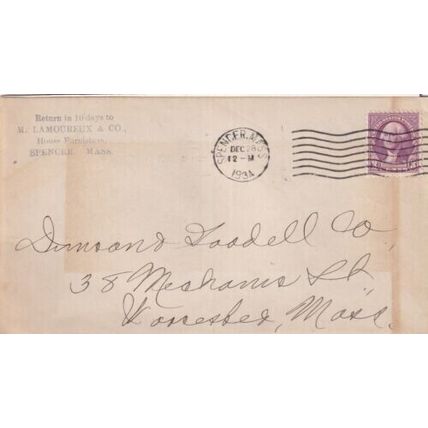 Return in 10 days to
M. LAMOUREUX & CO.,
House Furnishers,
SPENCER, MASS.
SPENCER, MASS
DEC 28
12 - M
1934
Duncan & Goodell Co.
38 Mechanic St.,
Worcester, Mass.